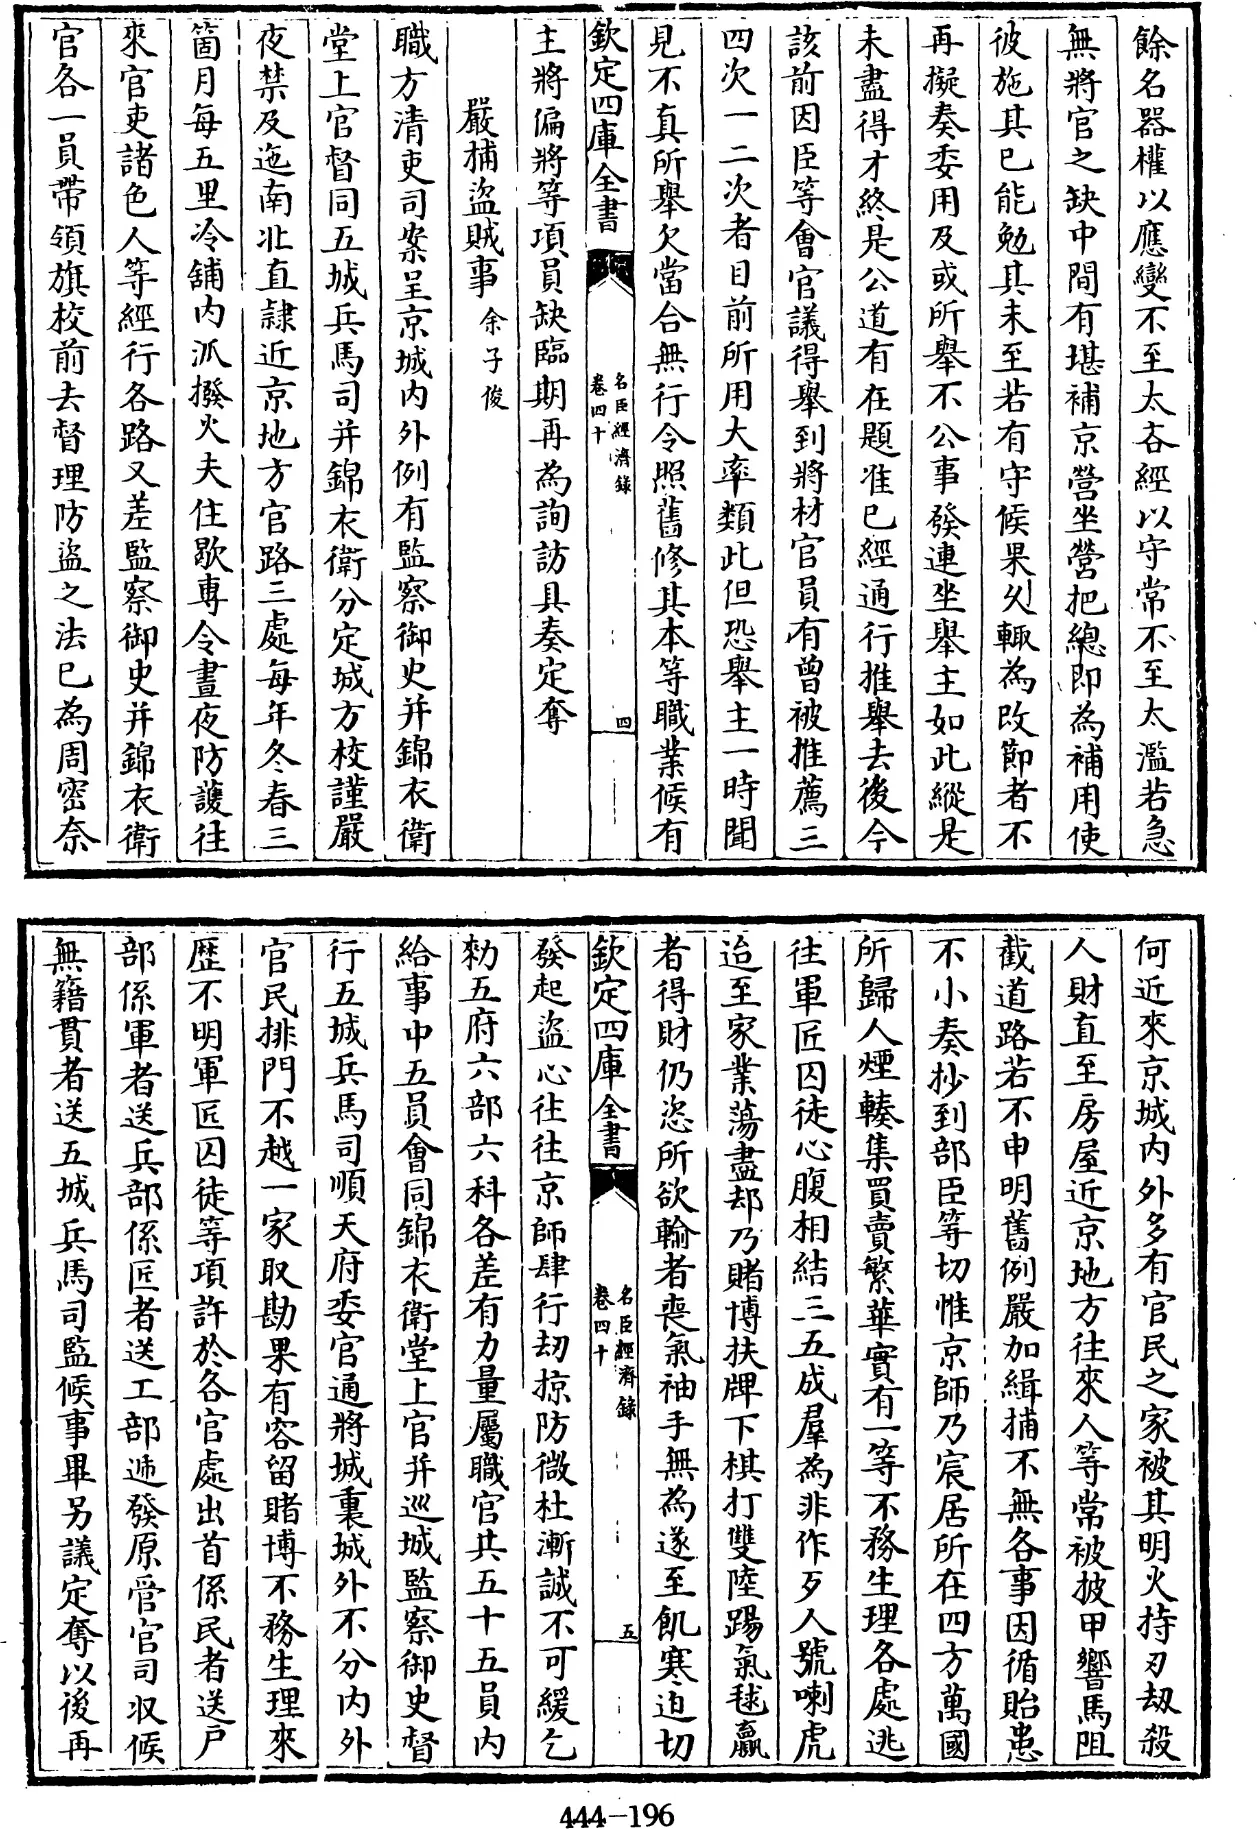 餘名器權以應變不至太吝經以守常不至太濫若急
無將官之缺中間有堪補京營坐營把總即為補用使
彼施其已能勉其未至若有守候果久輒為改節者不
再擬奏委用及或所舉不公事發連坐舉主如此縱是
未盡得才終是公道有在題准已經通行推舉去後今
該前因臣等會官議得舉到將材官員有曾被推薦三
四次一二次者目前所用大率類此但恐舉主一時聞
見不真所舉欠當合無行令照舊修其本等職業候有
欽定四庫全書
名臣經濟錄
卷四十
四
主將偏將等項員缺臨期再為詢訪具奏定奪
嚴捕盜賊事 余子俊
職方清吏司案呈京城內外例有監察御史并錦衣衛
堂上官督同五城兵馬司并錦衣衛分定城方校謹嚴
夜禁及迤南北直隸近京地方官路三處每年冬春三
箇月每五里冷鋪內派撥火夫住歇專令晝夜防護往
來官吏諸色人等經行各路又差監察御史并錦衣衛
官各一員帶領旗校前去督理防盜之法已為周密奈
何近來京城內外多有官民之家被其明火持刃劫殺
人財直至房屋近京地方往來人等常被披甲響馬阻
截道路若不申明舊例嚴加緝捕不無各事因循貽患
不小奏抄到部臣等切惟京師乃宸居所在四方萬國
所歸人煙輳集買賣繁華實有一等不務生理各處逃
往軍匠囚徒心腹相結三五成羣為非作歹人號喇虎
迨至家業蕩盡却乃賭博扶牌下棋打雙陸踢氣毬贏
者得財仍恣所欲輸者喪氣袖手無為遂至飢寒迫切
欽定四庫全書
名臣經濟錄
卷四十
五
發起盜心往往京師肆行刧掠防微杜漸誠不可緩乞
勑五府六部六科各差有力量屬職官共五十五員內
給事中五員會同錦衣衛堂上官并巡城監察御史督
行五城兵馬司順天府委官通將城裏城外不分內外
官民排門不越一家取勘果有容留賭博不務生理來
歷不明軍匠囚徒等項許於各官處出首係民者送戶
部係軍者送兵部係匠者送工部遞發原管官司収候
無籍貫者送五城兵馬司監候事畢另議定奪以後再
444-196